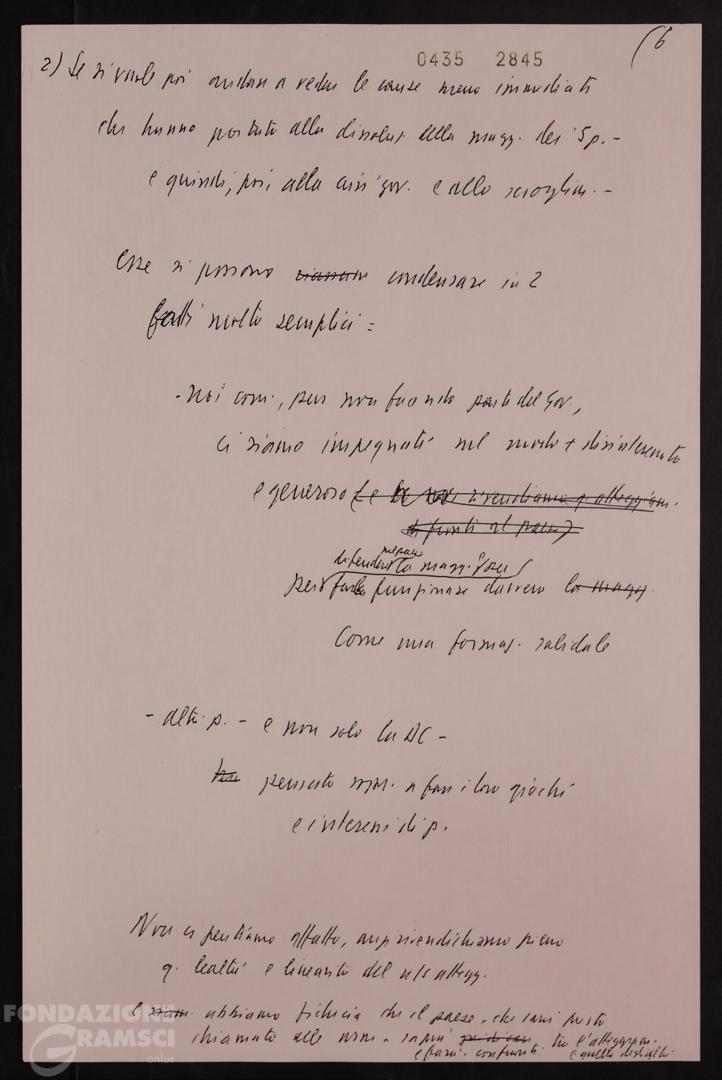 (6
0435 2845
2) Se si vuole poi andare a veder le cause meno immediati
che hanno portato alla dissoluz. della magg. dei 5 p. -
e quindi, poi, alla crisi gov. e allo scioglim. -
Esse si possono condensare in 2
fatti molto semplici =
- Noi com., pur non facendo parte del Gov.,
ci siamo impegnati nel modo + disinteressato
e generoso (e noi rivendichiamo q. atteggiam.
di fronte al paese)
difendere la magg.
per far funzionare davvero la magg.
come una formaz. solidale
- altri p. - e non solo la DC -
pensato sopr. a fare i loro giochi
e interessi di p.
Non ci pentiamo affatto, anzi rivendichiamo pieno
q. lealtà e linearità del n/s attegg.
e abbiamo fiducia che il paese, che sarà presto
chiamato alle urne - saprà tra l'atteggiam.
e fare confronti e quello degli altri
FONDAZIONE
GRAMSCI
onlus